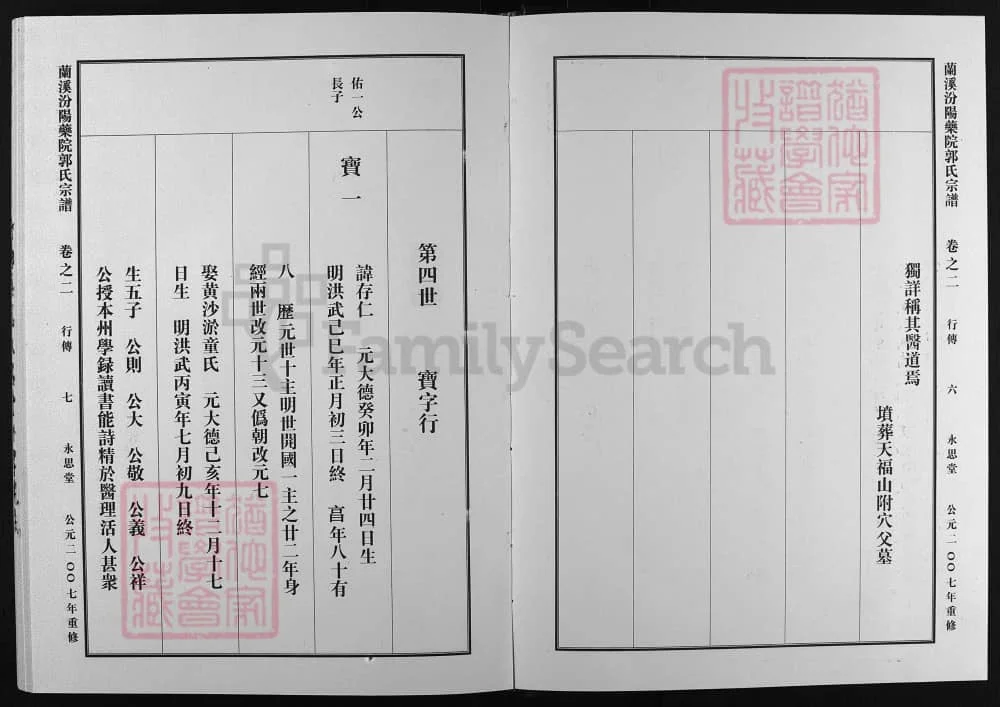 蘭溪汾陽藥院郭氏宗譜 卷之二 行傳 六 永思堂 公元二〇〇七年重修
獨詳稱其醫道焉
墳葬天福山附穴父墓
第四世 寶字行
佑一公
長子
寶一
諱存仁 元大德癸卯年二月廿四日生
明洪武己巳年正月初三日終 亯年八十有
八 歷元世十主明世開國一主之廿二年身
經兩世改元十三又僞朝改元七
娶黄沙淤童氏 元大德己亥年十二月十七
日生 明洪武丙寅年七月初九日終
生五子 公則 公大 公敬 公義 公祥
公授本州學録讀書能詩精於醫理活人甚衆
蘭溪汾陽藥院郭氏宗譜 卷之二 行傳 七 永思堂 公元二〇〇七年重修
FamilySearch